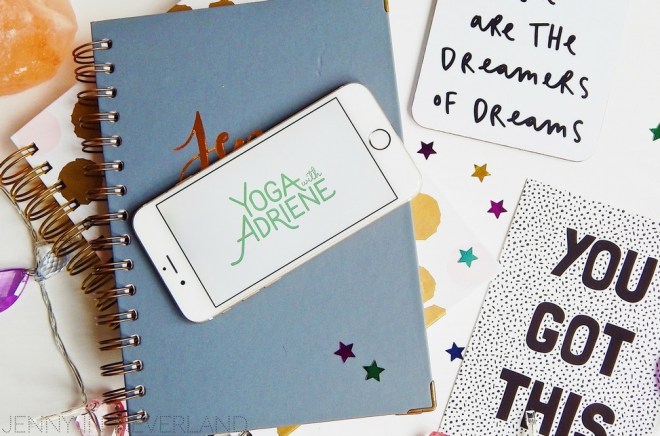 ARE THE
DREAMERS
OF DREAMS
YOGA
with
ADRIENE
YOU
GOT
THIS
JENNY IN NEVERLAND